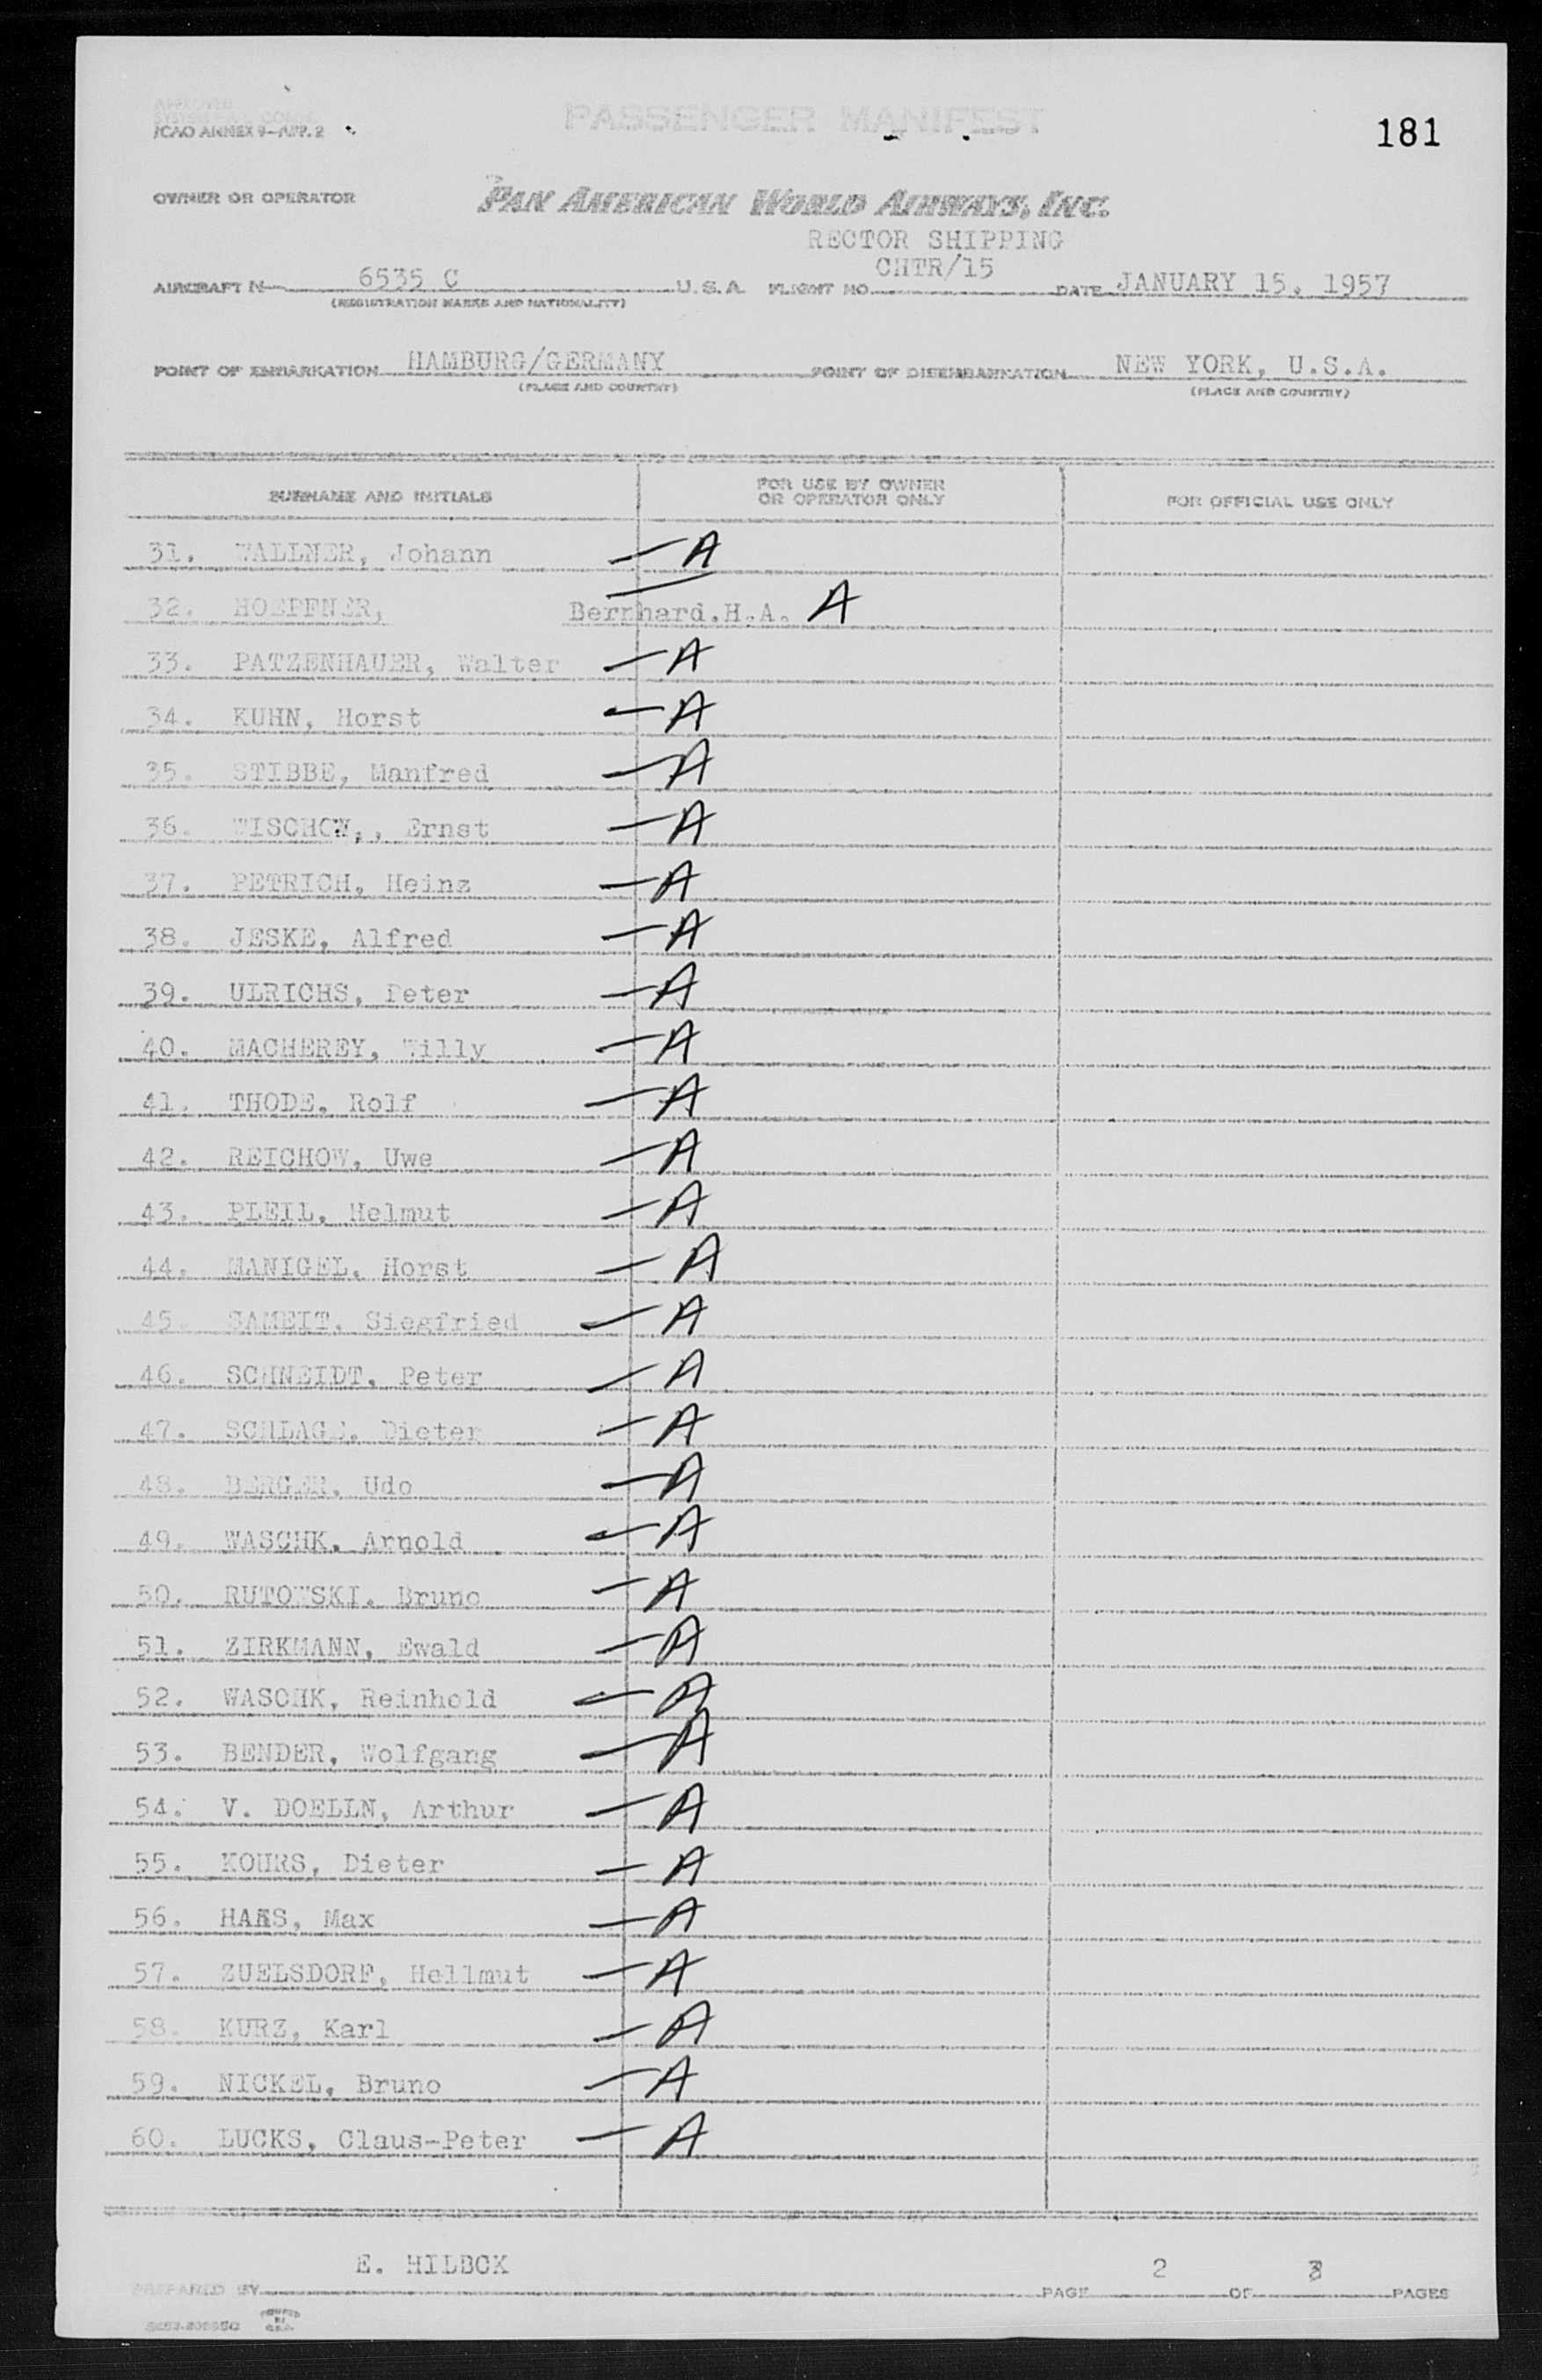 APPROVED
ICAO ANNEX 9-APP. 2
PASSENGER MANIFEST
181
OWNER OR OPERATOR
PAN AMERICAN WORLD AIRWAYS, INC.
RECTOR SHIPPING
CHTR/15
AIRCRAFT N 6535 C U.S.A. FLIGHT NO. DATE JANUARY 15. 1957
(REGISTRATION MARKS AND NATIONALITY)
POINT OF EMBARKATION HAMBURG/GERMANY POINT OF DISEMBARKATION NEW YORK, U.S.A.
(PLACE AND COUNTRY) (PLACE AND COUNTRY)
SURNAME AND INITIALS FOR USE BY OWNER OR OPERATOR ONLY FOR OFFICIAL USE ONLY
31. WALLNER, Johann — A
32. HOEPFNER, Bernhard.H.A. A
33. PATZENHAUER, Walter — A
34. KUHN, Horst — A
35. STIBBE, Manfred — A
36. WISCHOW,, Ernst — A
37. PETRICH, Heinz — A
38. JESKE, Alfred — A
39. ULRICHS, Peter — A
40. MACHEREY, Willy — A
41. THODE, Rolf — A
42. REICHOW, Uwe — A
43. PLEIL, Helmut — A
44. MANIGEL, Horst — A
45. SAMEIT, Siegfried — A
46. SCHNEIDT, Peter — A
47. SCHLAGE, Dieter — A
48. BERGER, Udo — A
49. WASCHK, Arnold — A
50. RUTOWSKI, Bruno — A
51. ZIRKMANN, Ewald — A
52. WASCHK, Reinhold — A
53. BENDER, Wolfgang — A
54. V. DOELLN, Arthur — A
55. KOURS, Dieter — A
56. HAAS, Max — A
57. ZUELSDORF, Hellmut — A
58. KURZ, Karl — A
59. NICKEL, Bruno — A
60. LUCKS, Claus-Peter — A
E. HILBCK
PREPARED BY PAGE 2 OF 3 PAGES
PRINTED IN U.S.A.